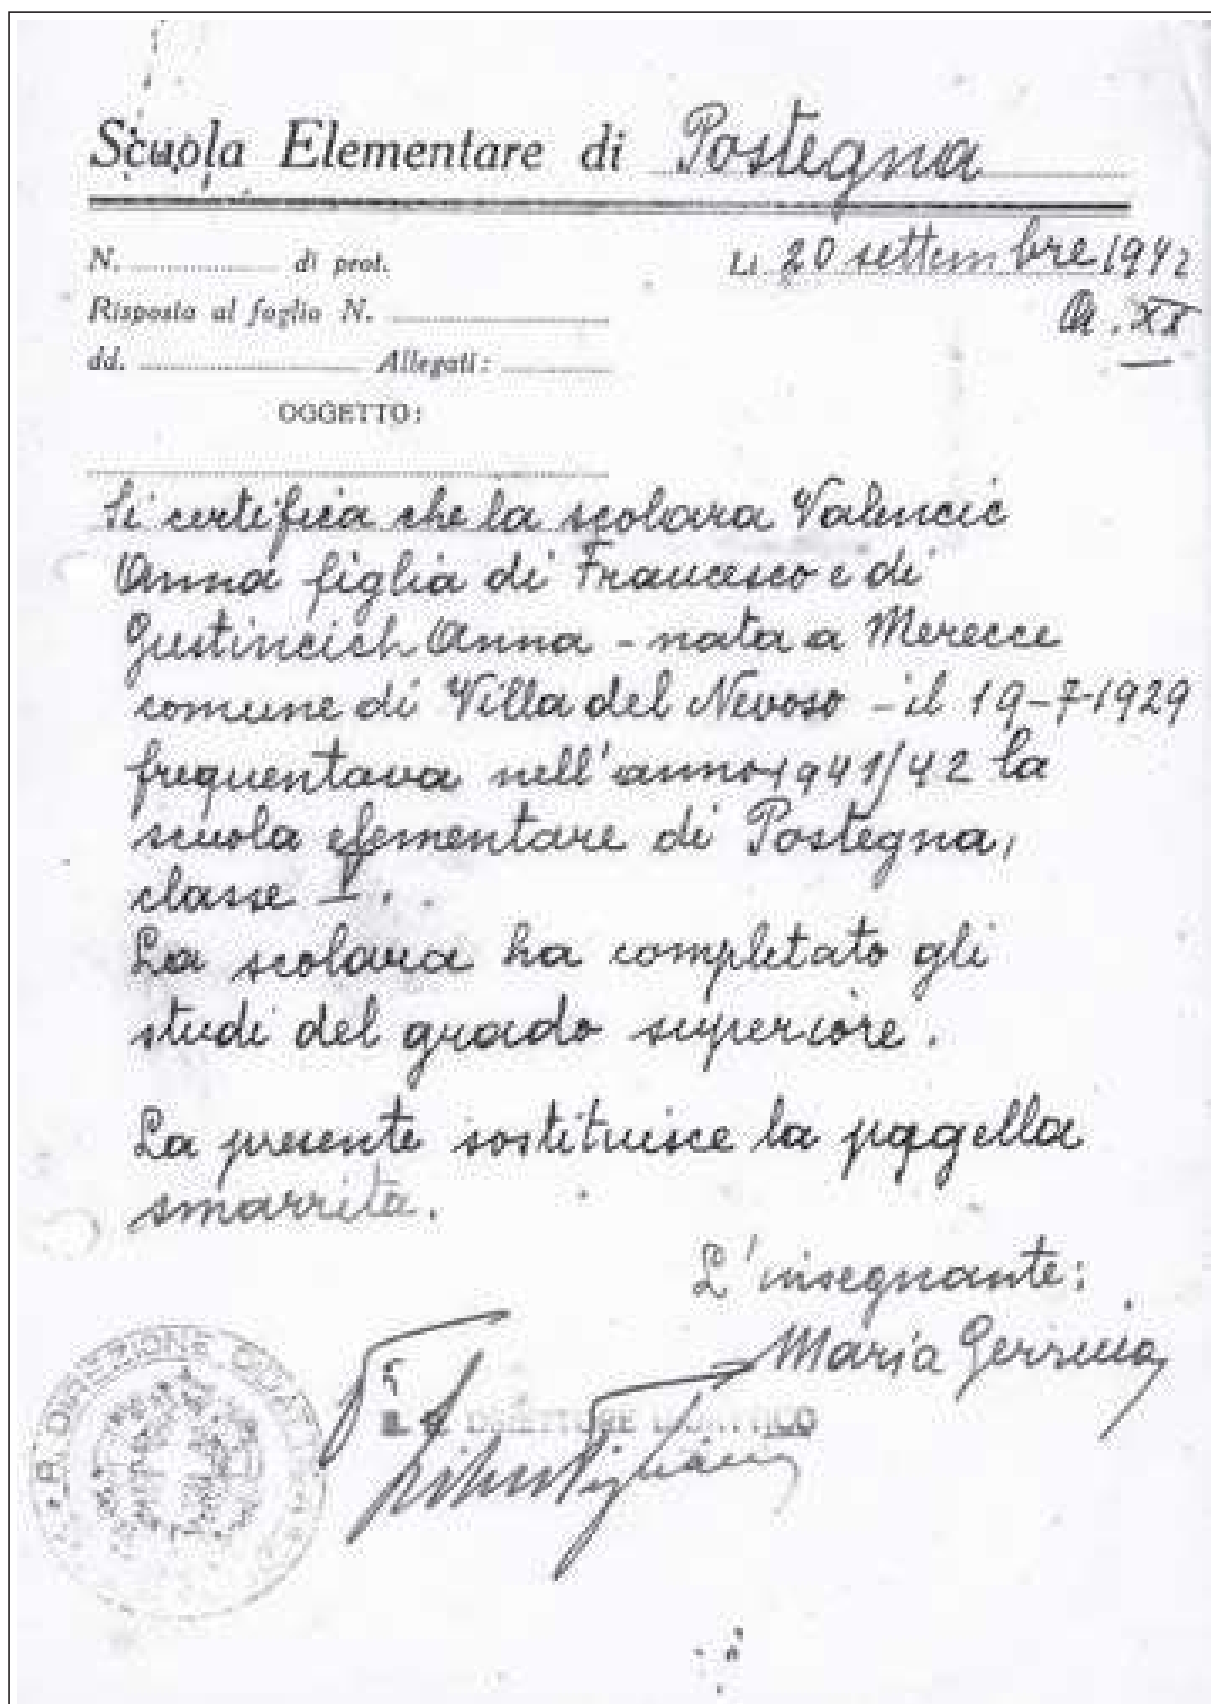 Scuola Elementare di Postegna
N. di prot.
Li 20 settembre 1942
A. XX
Risposta al foglio N.
dd. Allegati:
OGGETTO:
Si certifica che la scolara Valencic
Anna figlia di Francesco e di
Gustincich Anna - nata a Merecce
comune di Villa del Nevoso - il 19-7-1929
frequentava nell'anno 1941/42 la
scuola elementare di Postegna,
classe V.
La scolara ha completato gli
studi del grado superiore.
La presente sostituisce la pagella
smarrita.
L'insegnante:
Maria
DIRETTORE
R. DIREZIONE